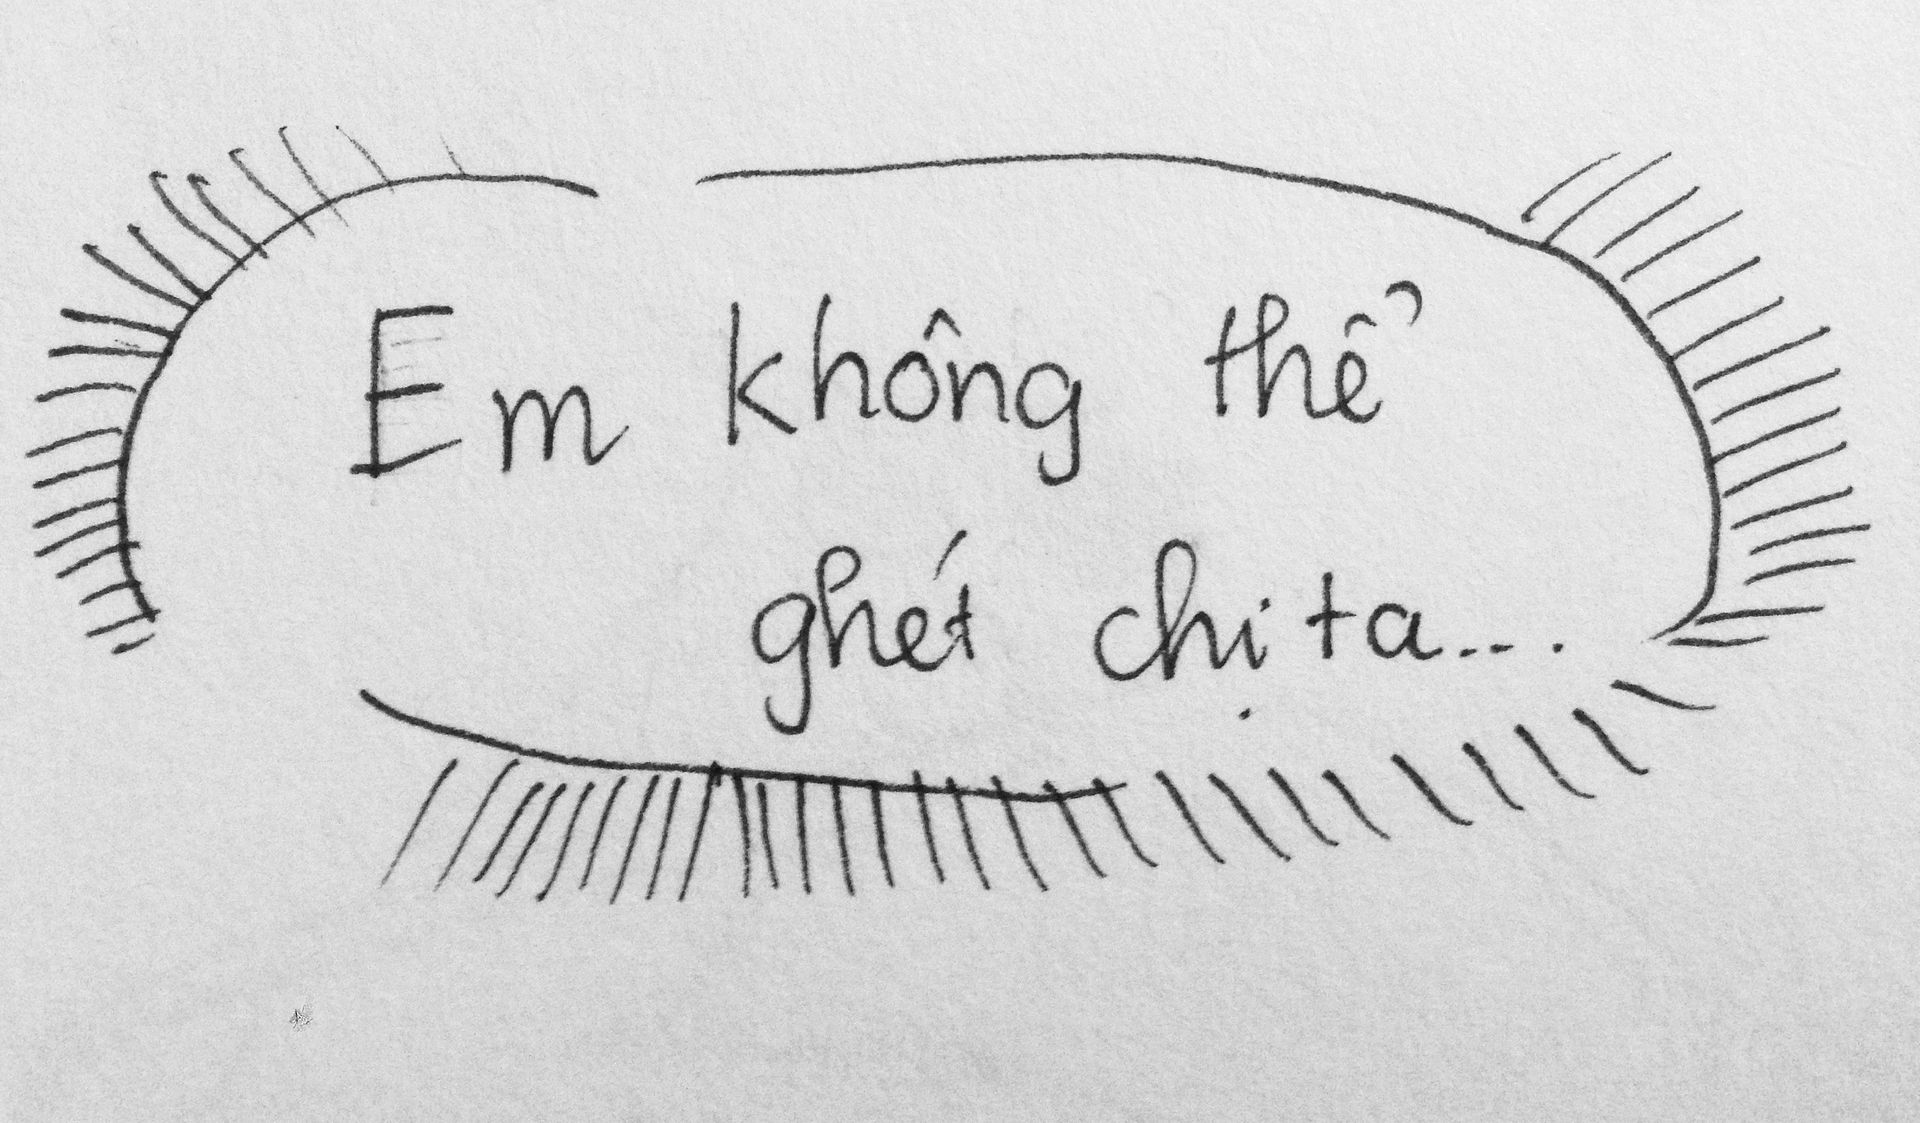 Em không thể
ghét chị ta...